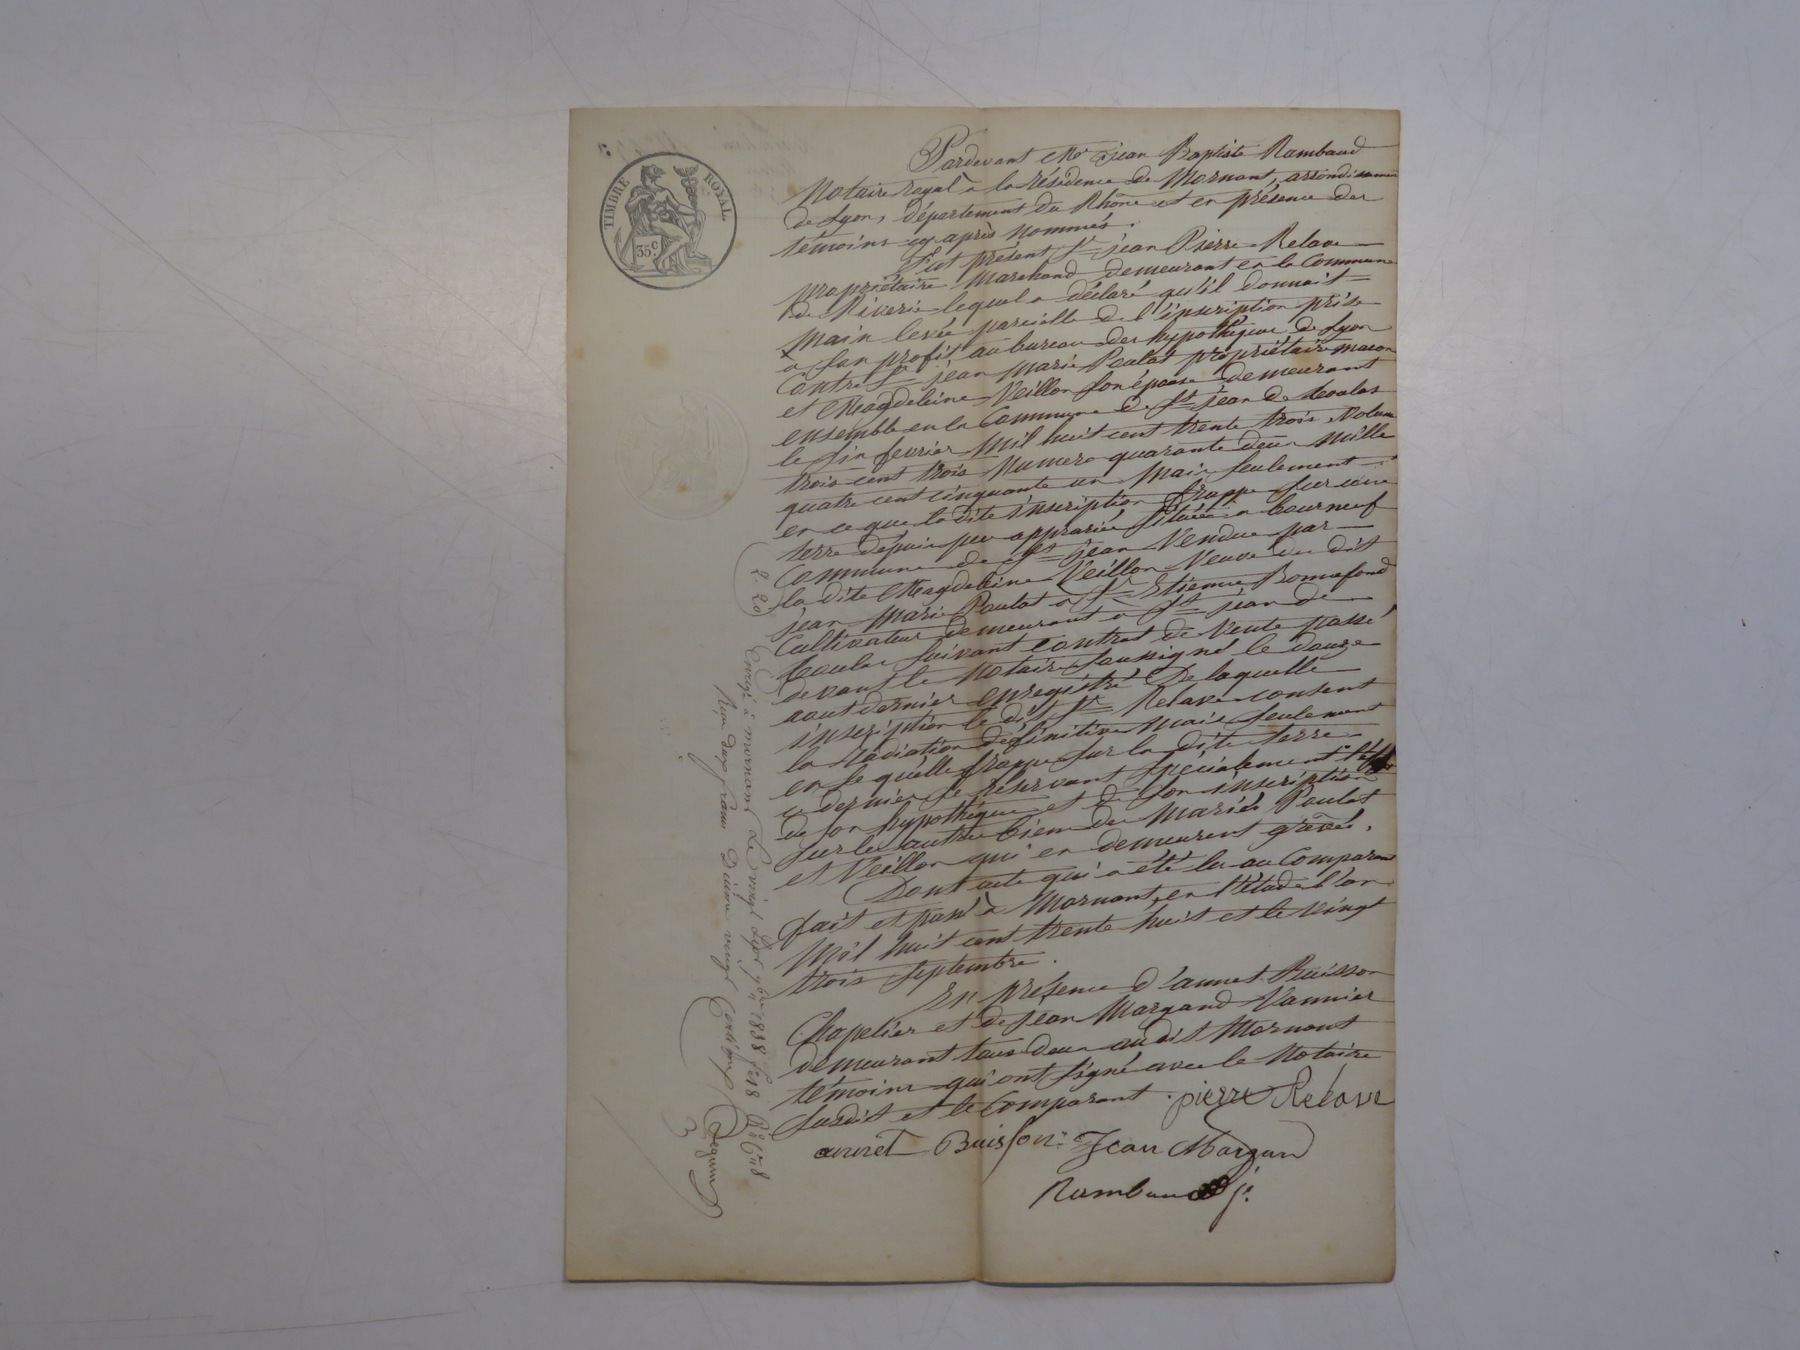 TIMBRE ROYAL
35 c.
Pardevant Me jean Baptiste Rambaud
Notaire royal à la résidence de Mornant, arrondissement
de Lyon, département du Rhône et en présence des
témoins cy après nommés.
fut présent Sr jean Pierre Relave
propriétaire Marchand demeurant en la Commune
de Riverie lequel a déclaré qu'il donnait
main levée parcielle de l'inscription prise
a son profit au bureau des hypothèque de Lyon
Contre Sr jean marie Poulat propriétaire macon
et Magdeleine Veillon son épouse demeurant
ensemble en la Commune de St jean de toulas
le six fevrier Mil huit cent trente trois, Volume
trois cent trois Numero quarante deux mille
quatre cent cinquante un Mais seulement
en ce que la dite inscription frappe sur une
terre depuis peu appraiée située a bourneuf
Commune de St jean Vendue par
la dite Magdeleine Veillon Veuve du dit
jean Marie Poulat a Sr Etienne Bonnefond
Cultivateur demeurant a St jean de
toulas suivant contrat de Vente passé
devant le Notaire soussigné le douze
aout dernier enregistré De laquelle
inscription le dit Sr Relave consent
la Radiation définitive mais seulement
en ce qu'elle frappe sur la dite terre
ce dernier se réservant spécialement l'effet
de son hypothèque et de son inscription
sur les autres biens des Mariés Poulat
et Veillon qui en demeurent grevés.
Dont acte qui a été lu au Comparant
fait et passé à Mornant, en l'étude l'an
Mil huit cent trente huit et le vingt
trois septembre.
En présence d'annet Buisson
Chapelier et de Jean Margand Vannier
demeurant tous deux au dit Mornant
témoins qui ont signé avec le Notaire
susdit et le Comparant.
pierre Relave
annet Buisson
Jean Margand
Rambaud j.
2. 20
Enregé à mornant le vingt sept 7bre 1838 fo 48 Ro C 8
Reçu deux francs Dixième vingt centimes